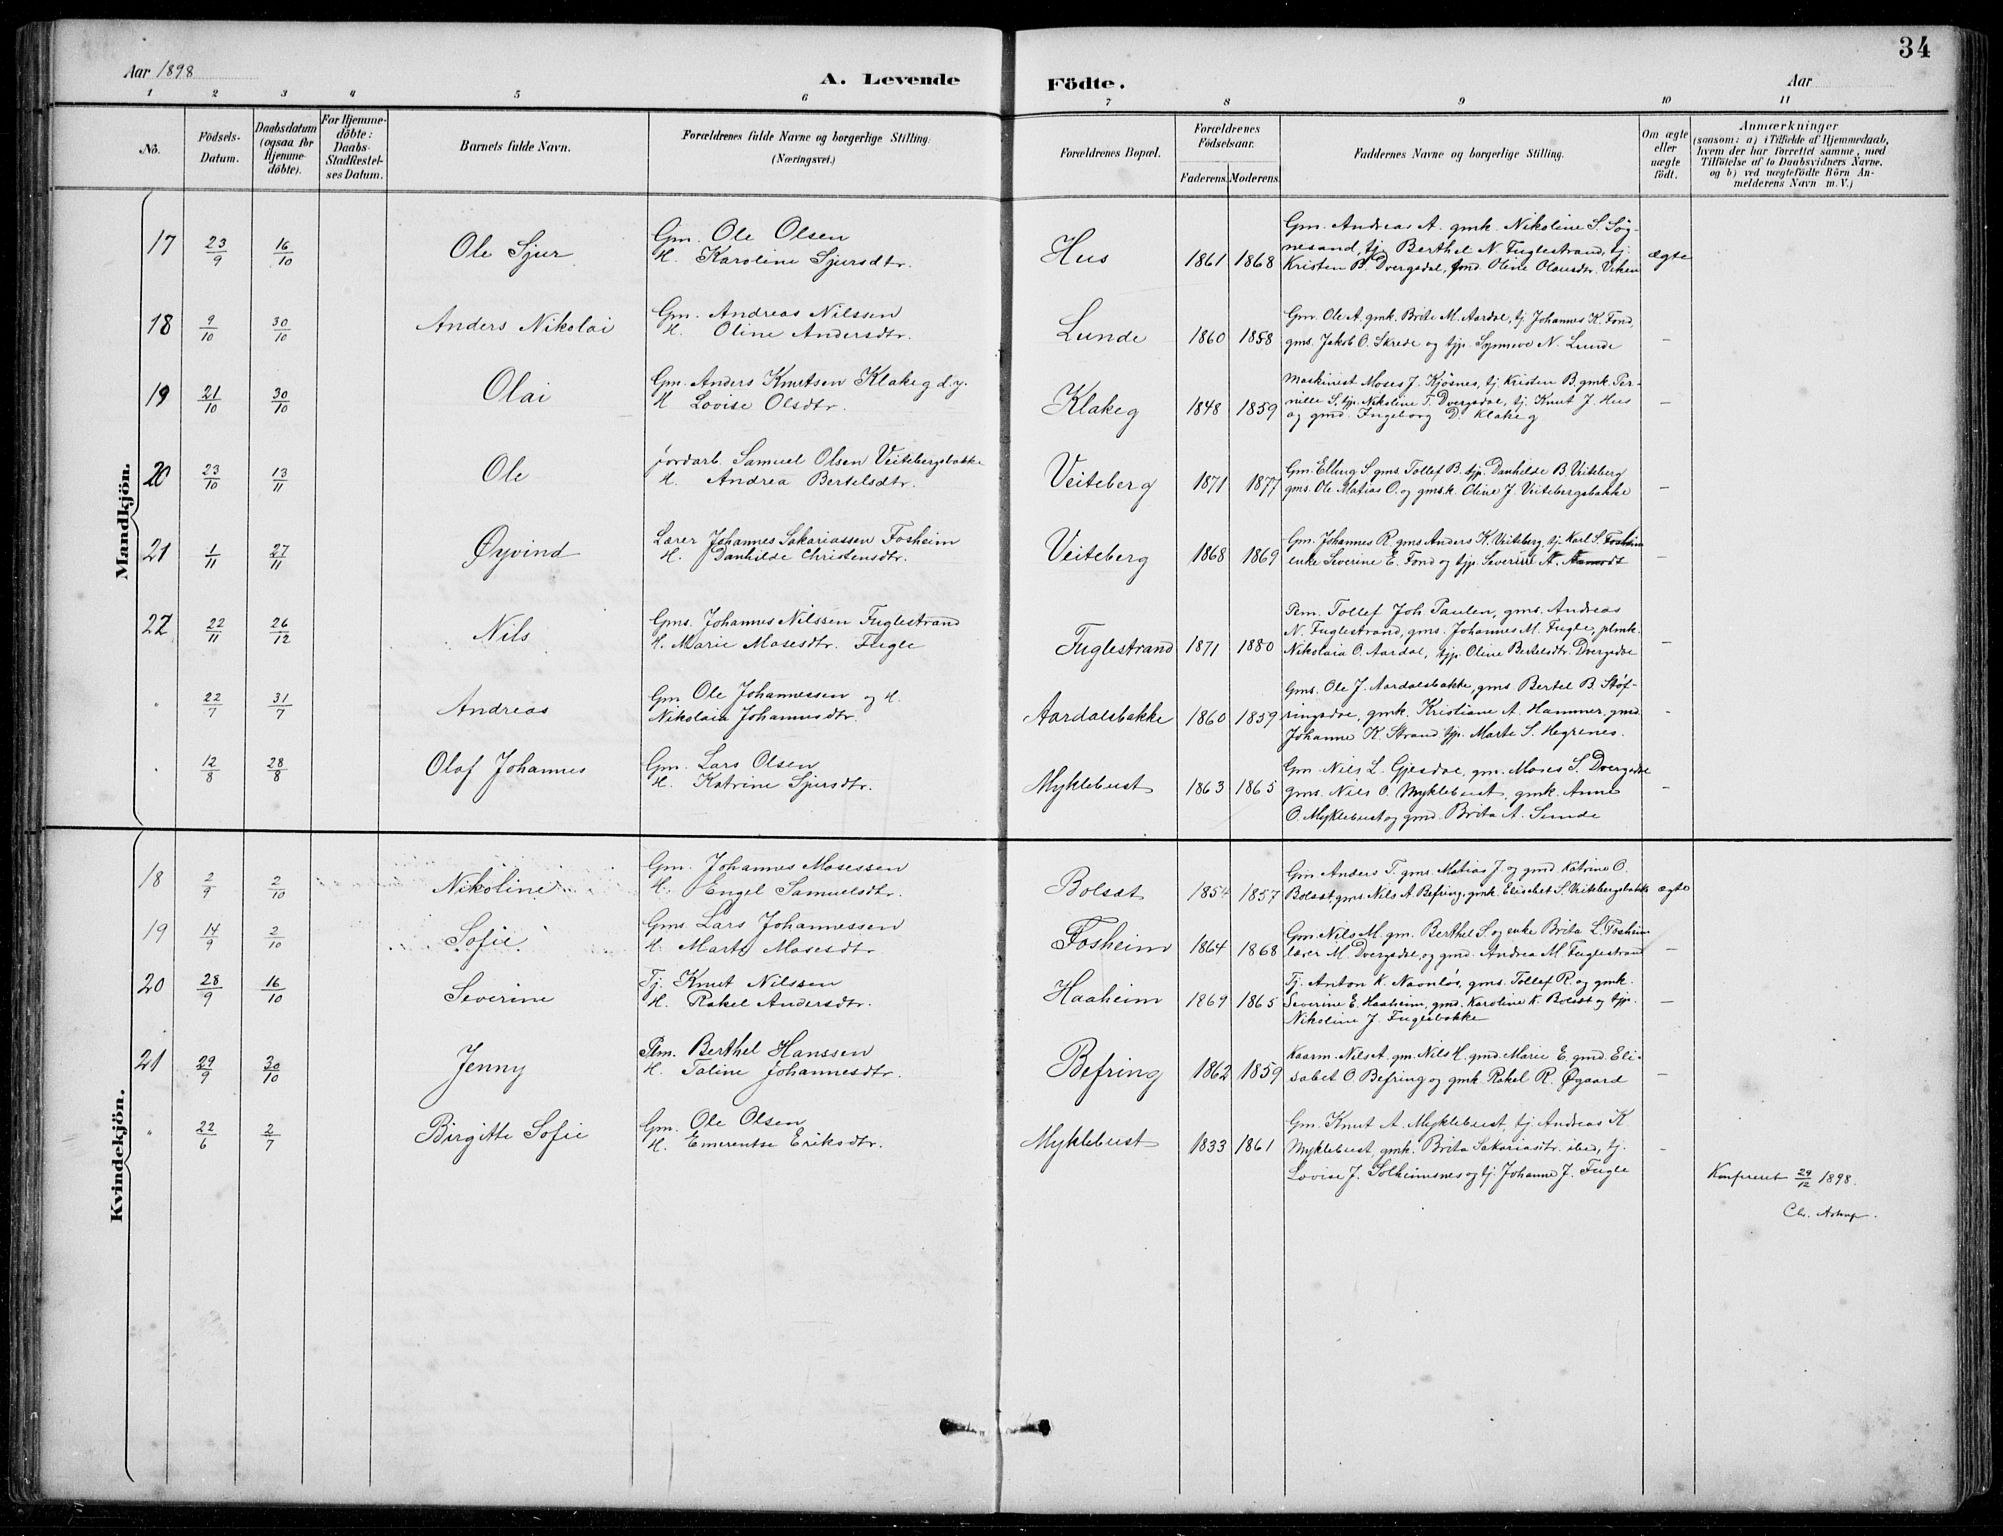 34
Aar 1898
A. Levende
Födte.
Aar
1 2 3 4 5 6 7 8 9 10 11
No.
Födsels-
Datum.
Daabsdatum
(ogsaa for
Hjemme-
döbte).
For Hjemme-
döbte:
Daabs-
Stadfæstel-
ses Datum.
Barnets fulde Navn.
Forældrenes fulde Navne og borgerlige Stilling.
(Næringsvei.)
Forældrenes Bopæl.
Forældrenes
Födselsaar.
Faderens. Moderens.
Faddernes Navne og borgerlige Stilling.
Om ægte
eller
uægte
födt.
Anmærkninger
(saasom: a) i Tilfælde af Hjemmedaab,
hvem der har forrettet samme, med
Tilföielse af to Daabsvidners Navne,
og b) ved uægtefödte Börn An-
melderens Navn m. V.)
Mandkjön.
17 23/9 16/10 Ole Sjur
Gm. Ole Olsen
H. Karoline Sjursdtr.
Hus 1861 1868
Gm. Andreas A. gmk. Nikoline S. Søg-
nesand, tj. Berthel N. Fuglestrand, tj.
Kristen B. Dvergsdal, gmd. Oline Olausdtr. Viken
ægte
18 9/10 30/10 Anders Nikolai
Gm. Andreas Nilssen
H. Oline Andersdtr.
Lunde 1860 1858
Gm. Ole A. gmk. Brite M. Aardal, tj. Johannes K. Fond,
gms. Jakob O. Skrede og tjp. Synneve N. Lunde
–
19 21/10 30/10 Olai
Gm. Anders Knutsen Klakeg d.y.
H. Lovise Olsdtr.
Klakeg 1848 1859
Maskinist Moses J. Kjøsnes, tj. Kristen B. gmk. Per-
nille S. tjp. Nikoline T. Dvergsdal, tj. Knut J. Hus
og gmd. Ingeborg D. Klakeg
–
20 23/10 13/11 Ole
Jordarb. Samuel Olsen Veitebergsbakke
H. Andrea Bertelsdtr.
Veiteberg 1871 1877
Gm. Elling S. gms. Tollef B. tjp. Danhilde B. Veiteberg
gms. Ole Matias O. og gmsk. Oline J. Veitebergsbakke
–
21 1/11 27/11 Øyvind
Lærer Johannes Sakariassen Fosheim
H. Danhilde Christensdtr.
Veiteberg 1868 1869
Gm. Johannes R. gms Anders K. Veiteberg, tj. Karl S. Fosheim
enke Severine E. Fond og tjp. Severine N.
–
22 22/11 26/12 Nils
Gms. Johannes Nilssen Fuglestrand
H. Marie Mosesdtr. Fugle
Fuglestrand 1871 1880
Pem. Tollef Joh. Paulen, gms. Andreas
N. Fuglestrand, gms. Johannes M. Fugle, plmk.
Nikolaia O. Aardal, tjp. Oline Bertelsdtr. Dvergsdal
–
" 22/7 31/7 Andreas
Gm. Ole Johannessen og H.
Nikolaia Johannesdtr.
Aardalsbakke 1860 1859
Gms. Ole J. Aardalsbakke, gms Bertel B. Støf-
ringsdal, gmk. Kristiane A. Hammer, gmd.
Johanne K. Strand tjp. Marte S. Hegrenes.
–
" 12/8 28/8 Olaf Johannes
Gm. Lars Olsen
H. Katrine Sjursdtr.
Myklebust 1863 1865
Gm. Nils L. Gjesdal, gm. Moses S. Dvergsdal
gms. Nils O. Myklebust, gmk. Anne
O. Myklebust og gmd. Brita A. Sunde
–
Kvindekjön.
18 2/9 2/10 Nikoline
Gm. Johannes Mosessen
H. Engel Samuelsdtr.
Bolsæt 1854 1857
Gm Anders T. gms. Matias J. og gmd Katrine O.
Bolsæt, gms Nils A. Befring, gmk. Elisebet S. Veitebergsbakke
ægte
19 14/9 2/10 Sofie
Gms Lars Johannessen
H. Marte Mosesdtr.
Fosheim 1864 1868
Gm. Nils M. gm. Berthel S. og enke Brita L. Fosheim
lærer M. Dvergsdal, og gmd. Andrea M. Fuglestrand
–
20 28/9 16/10 Severine
Tj. Knut Nilssen
H. Rakel Andersdtr.
Haaheim 1869 1865
Tj. Anton K. Navnløs, gms. Tollef R. og gmk.
Severine E. Haaheim, gmd. Karoline K. Bolsæt og tjp.
Nikoline J. Fuglebakke
–
21 29/9 30/10 Jenny
Plm. Berthel Hanssen
H. Taline Johannesdtr.
Befring 1862 1859
Kaarm. Nils A. gm. Nils H. gmd. Marie E. gmd. Eli-
sabet O. Befring og gmk. Rakel R. Øgaard
–
" 22/6 2/7 Birgitte Sofie
Gm. Ole Olsen
H. Emerentse Eriksdtr.
Myklebust 1833 1861
Gm. Knut A. Myklebust, tj. Andreas K.
Myklebust, gmk. Brita Sakariasdtr. ibid, tj.
Lovise J. Solheimsnes og tj. Johanne J. Fugle
–
Konfereret 29/12 1898.
Chr. Astrup.